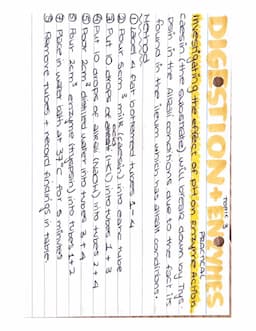 TOPIC 3
DIGESTION + ENZYMES
PRACTICAL
Investigating the effect of pH on Enzyme Action
Caesin (the substrate) will break down by Tryp-
psin in the Alkali conditions due to the fact its
found in the ileum which has alkali conditions.
Method
① Label 4 flat bottomed tubes 1 - 4
② Pour 5cm³ milk (caesin) into each tube
③ Put 10 drops of acid (HCl) into tubes 1 + 3
④ Put 10 drops of alkali (NaOH) into tubes 2 + 4
⑤ Pour 2cm³ distilled water into tubes 3 + 4
⑥ Pour 2cm³ enzyme (trypsin) into tubes 1 + 2
⑦ Place in water bath at 37°C for 5 minutes
⑧ Remove tubes + record findings in table.